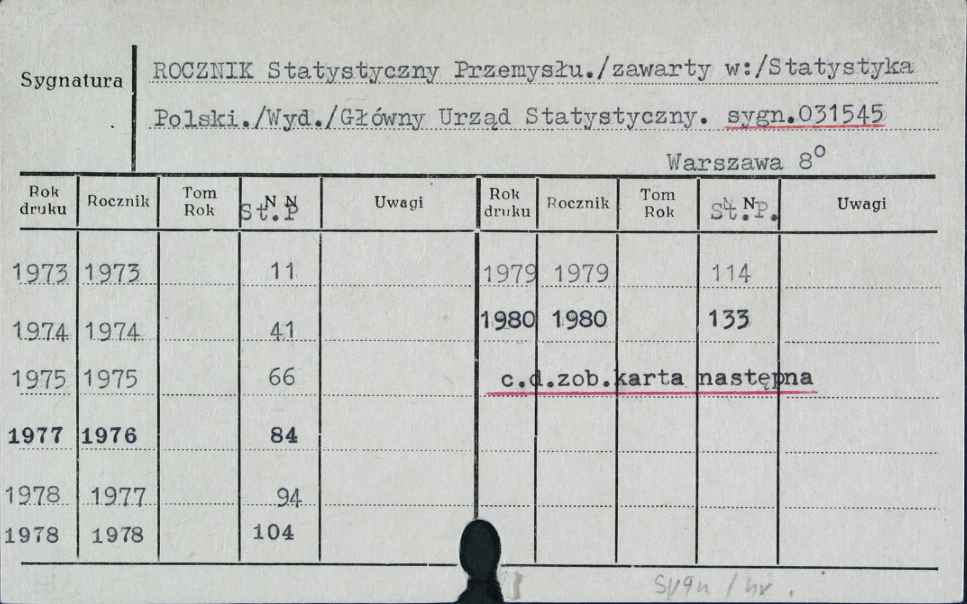 Sygnatura
ROCZNIK Statystyczny Przemysłu./zawarty w:/Statystyka
Polski./Wyd./Główny Urząd Statystyczny. sygn.031545
Warszawa 8⁰
Rok druku Rocznik Tom Rok St.P Uwagi Rok druku Rocznik Tom Rok St.P. Uwagi
1973 1973 11 1979 1979 114
1974 1974 41 1980 1980 133
1975 1975 66 c.d.zob.karta następna
1977 1976 84
1978 1977 94
1978 1978 104
sygn / nr.